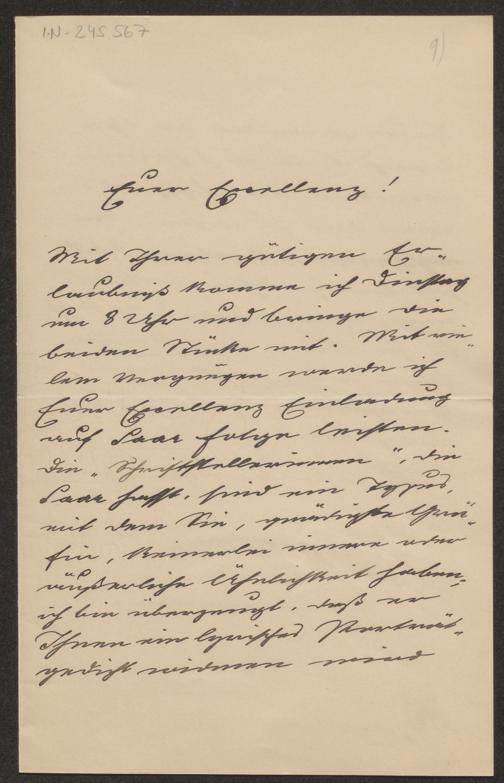 I.N. 245.567
9)
Euer Excellenz!
Mit Ihrer gütigen Er-
laubniß komme ich Dinstag
um 8 Uhr und bringe die
beiden Stücke mit. Mit vie-
lem Vergnügen werde ich
Euer Excellenz Einladung
auf Saar folge leisten.
Die „Schriftstellerinnen“, die
Saar hasst, sind ein Typus,
mit dem Sie, gnädigste Grä-
fin, keinerlei innere oder
äußerliche Ähnlichkeit haben,
ich bin überzeugt, daß er
Ihnen ein lyrisches Porträt-
gedicht widmen wird